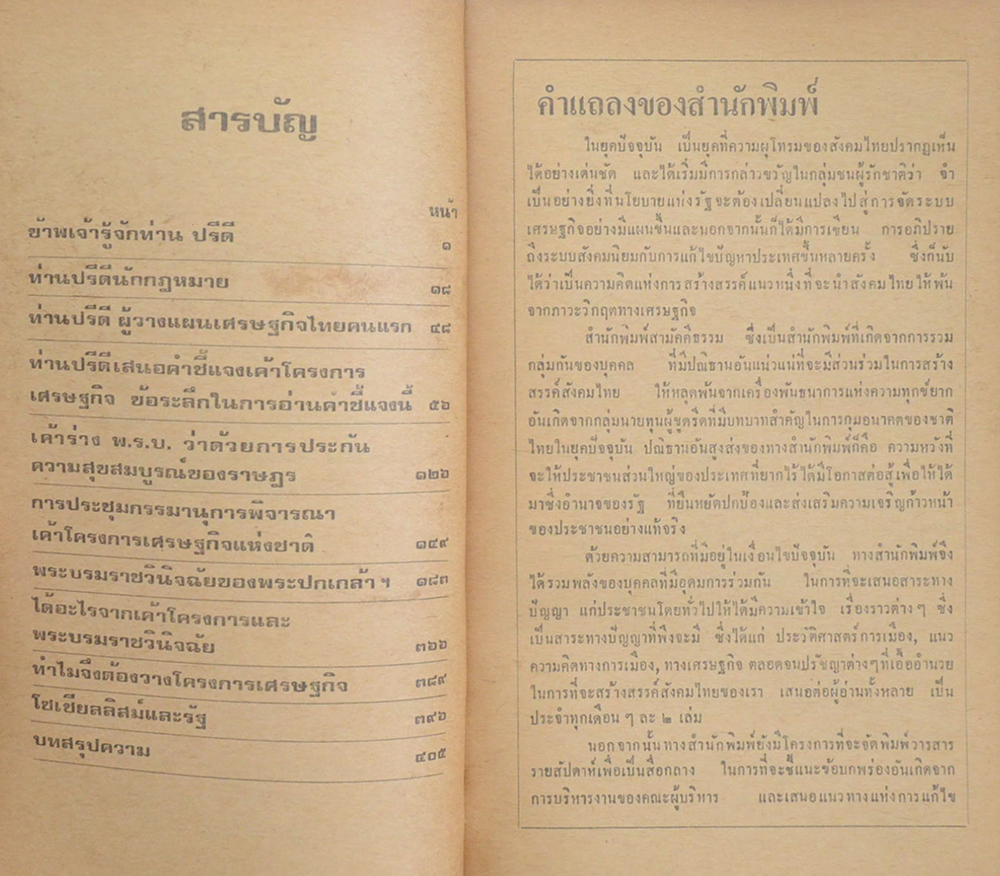 สารบัญ
หน้า
ข้าพเจ้ารู้จักท่าน ปรีดี ๑
ท่านปรีดีนักกฎหมาย ๑๘
ท่านปรีดี ผู้วางแผนเศรษฐกิจไทยคนแรก ๔๘
ท่านปรีดีเสนอคำชี้แจงเค้าโครงการ
เศรษฐกิจ ข้อระลึกในการอ่านคำชี้แจงนี้ ๕๖
เค้าร่าง พ.ร.บ. ว่าด้วยการประกัน
ความสุขสมบูรณ์ของราษฎร ๑๒๖
การประชุมกรรมานุการพิจารณา
เค้าโครงการเศรษฐกิจแห่งชาติ ๑๔๙
พระบรมราชวินิจฉัยของพระปกเกล้า ฯ ๑๘๓
ได้อะไรจากเค้าโครงการและ
พระบรมราชวินิจฉัย ๓๖๖
ทำไมจึงต้องวางโครงการเศรษฐกิจ ๓๘๙
โซเชียลลิสม์และรัฐ ๓๙๖
บทสรุปความ ๔๐๕
คำแถลงของสำนักพิมพ์
ในยุคปัจจุบัน เป็นยุคที่ความผุโทรมของสังคมไทยปรากฏเห็น
ได้อย่างเด่นชัด และได้เริ่มมีการกล่าวขวัญในกลุ่มชนผู้รักชาติว่า จำ
เป็นอย่างยิ่งที่นโยบายแห่งรัฐจะต้องเปลี่ยนแปลงไปสู่การจัดระบบ
เศรษฐกิจอย่างมีแผนขึ้นและนอกจากนั้นก็ได้มีการเขียน การอภิปราย
ถึงระบบสังคมนิยมกับการแก้ไขปัญหาประเทศขึ้นหลายครั้ง ซึ่งก็นับ
ได้ว่าเป็นความคิดแห่งการสร้างสรรค์แนวหนึ่งที่จะนำสังคมไทยให้พ้น
จากภาวะวิกฤตทางเศรษฐกิจ
สำนักพิมพ์สามัคคีธรรม ซึ่งเป็นสำนักพิมพ์ที่เกิดจากการรวม
กลุ่มกันของบุคคล ที่มีปณิธานอันแน่วแน่ที่จะมีส่วนร่วมในการสร้าง
สรรค์สังคมไทย ให้หลุดพ้นจากเครื่องพันธนาการแห่งความทุกข์ยาก
อันเกิดจากกลุ่มนายทุนผู้ขูดรีดที่มีบทบาทสำคัญในการกุมอนาคตของชาติ
ไทยในยุคปัจจุบัน ปณิธานอันสูงส่งของทางสำนักพิมพ์ก็คือ ความหวังที่
จะให้ประชาชนส่วนใหญ่ของประเทศที่ยากไร้ได้มีโอกาสต่อสู้เพื่อให้ได้
มาซึ่งอำนาจของรัฐ ที่ยืนหยัดปกป้องและส่งเสริมความเจริญก้าวหน้า
ของประชาชนอย่างแท้จริง
ด้วยความสามารถที่มีอยู่ในเงื่อนไขปัจจุบัน ทางสำนักพิมพ์จึง
ได้รวมพลังของบุคคลที่มีอุดมการร่วมกัน ในการที่จะเสนอสาระทาง
ปัญญา แก่ประชาชนโดยทั่วไปให้ได้มีความเข้าใจ เรื่องราวต่าง ๆ ซึ่ง
เป็นสาระทางปัญญาที่พึงจะมี ซึ่งได้แก่ ประวัติศาสตร์การเมือง, แนว
ความคิดทางการเมือง, ทางเศรษฐกิจ ตลอดจนปรัชญาต่างๆที่เอื้ออำนวย
ในการที่จะสร้างสรรค์สังคมไทยของเรา เสนอต่อผู้อ่านทั้งหลาย เป็น
ประจำทุกเดือน ๆ ละ ๒ เล่ม
นอกจากนั้นทางสำนักพิมพ์ยังมีโครงการที่จะจัดพิมพ์วารสาร
รายสัปดาห์เพื่อเป็นสื่อกลาง ในการที่จะชี้แนะข้อบกพร่องอันเกิดจาก
การบริหารงานของคณะผู้บริหาร และเสนอแนวทางแห่งการแก้ไข